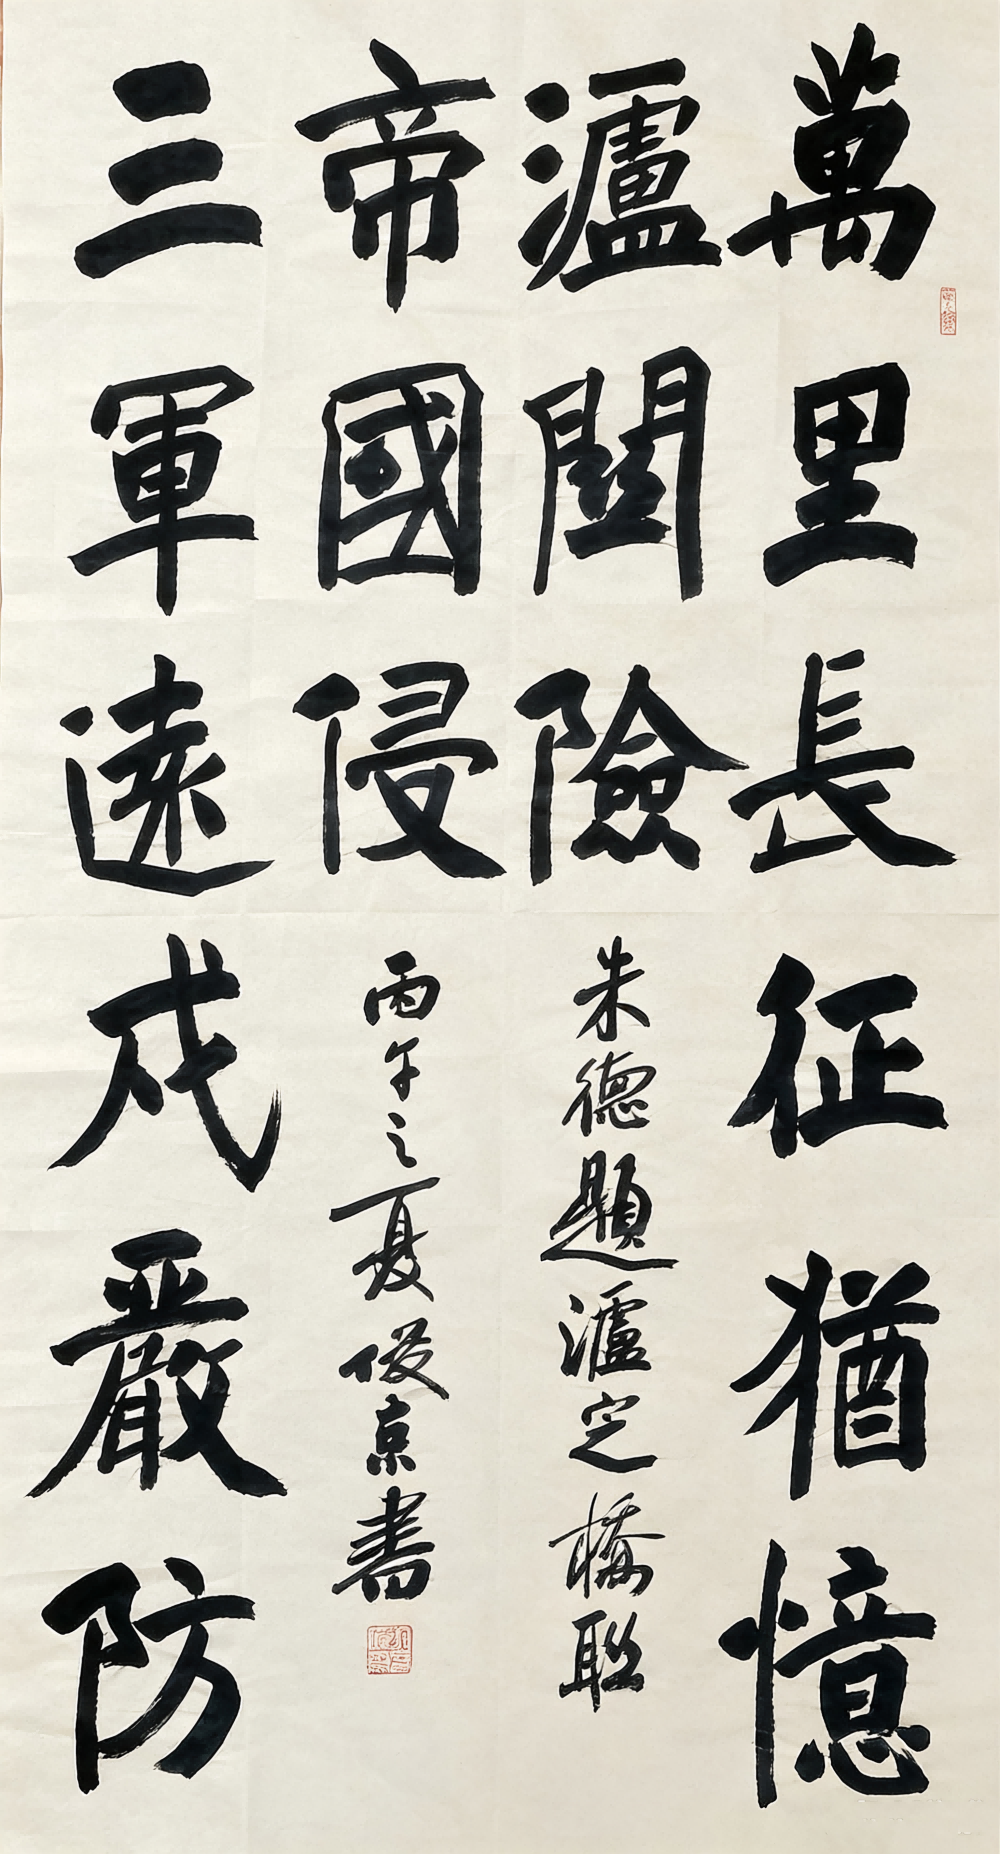 萬里長征猶憶
瀘關險
朱德題瀘定橋联
三軍遠戍嚴防
帝國侵
丙午之夏俊京書